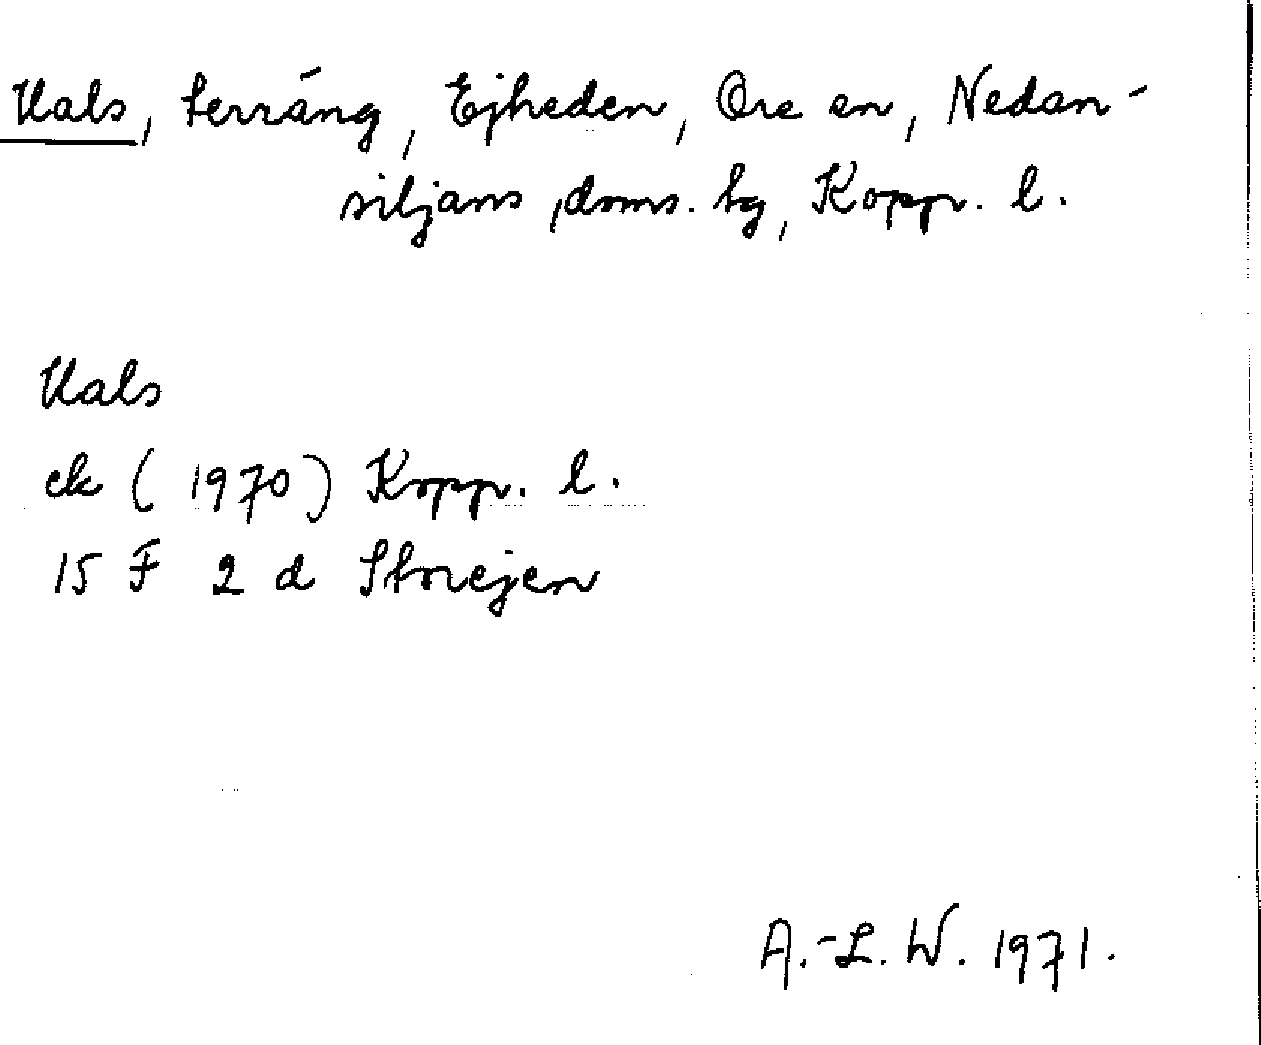 Uals, terräng, Ejheden, Ore sn, Nedan-
siljans doms. tg, Kopp. l.
Uals
ek (1970) Kopp. l.
15 F 2 d Storejen
A.-L. W. 1971.